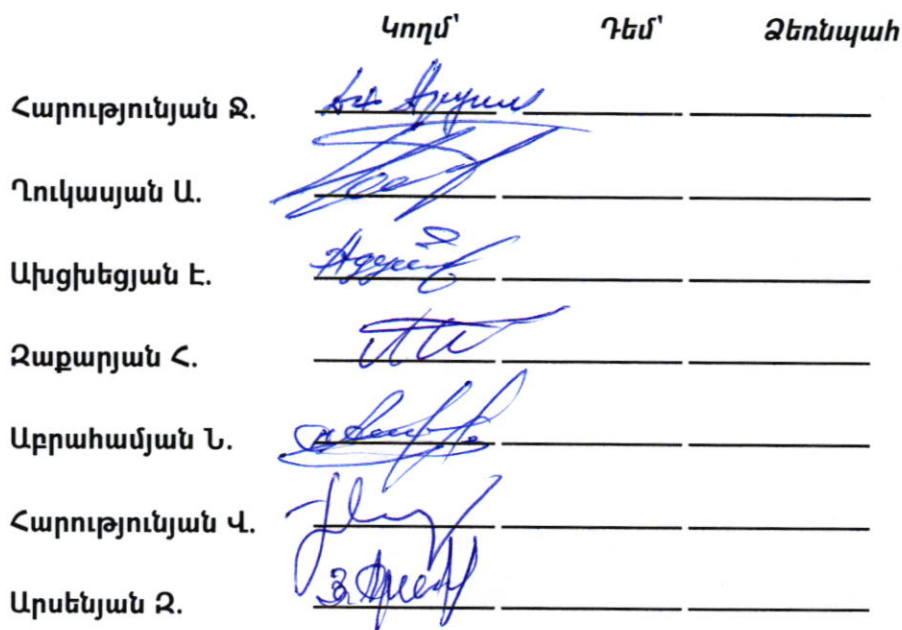 Կողմ՝ Դեմ՝ Ձեռնպահ
Հարությունյան Ջ.
Ղուկասյան Ա.
Ախցխեցյան Է.
Զաքարյան Հ.
Աբրահամյան Ն.
Հարությունյան Վ.
Արսենյան Զ.